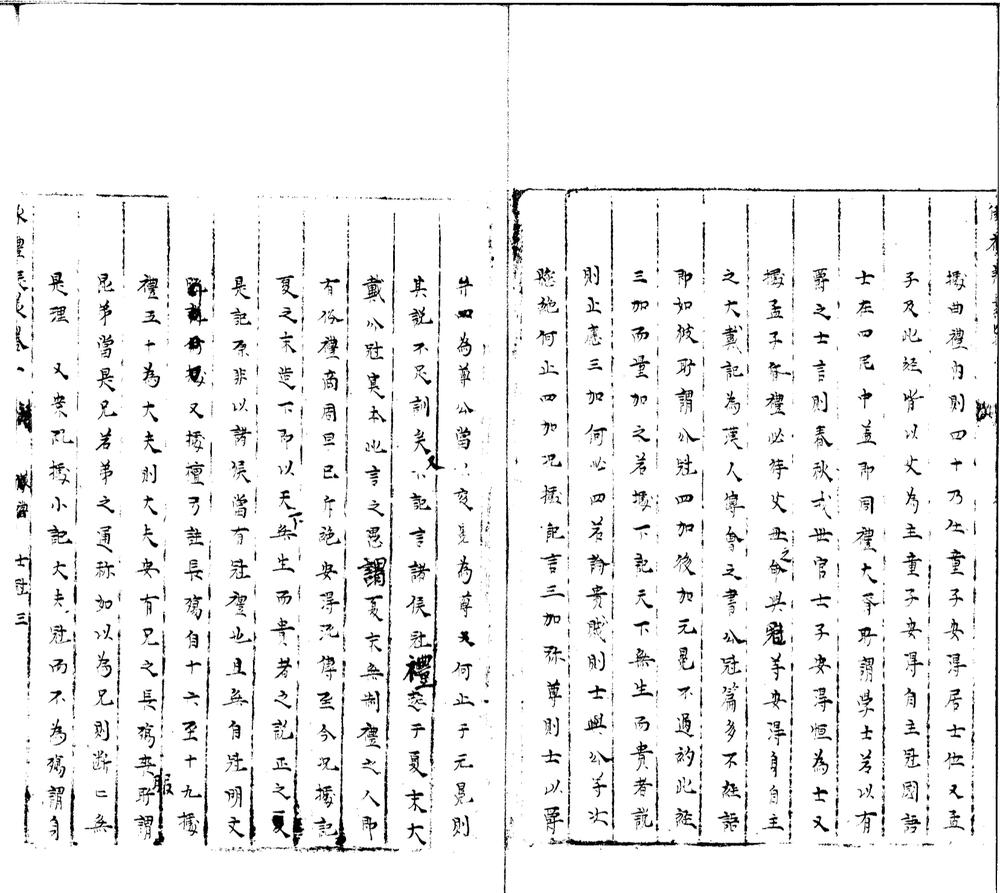 據曲禮內則四十乃仕童子安得居士位又孟
子及此經皆以父為主童子安得自主冠國語
士在四民中蓋即周禮大宰所謂學士若以有
爵之士言則春秋或世官士子安得恒為士又
據孟子冠禮必待父母之命與冠等安得身自主
之大戴記為漢人傅會之書公冠篇多不經語
即如彼所謂公冠四加後加元冕不過約此經
三加而量加之若據下記天下無生而貴者說
則止應三加何必四若論貴賤則士與公等此
懸絕何止四加況據記言三加弥尊則士以爵
弁四為尊公當冕為尊又何止于元冕則
其說不足訓矣又下記言諸侯冠禮起于夏末大
戴公冠實本此言之愚謂夏末無制禮之人即
有俗禮商周早已斥絕安得流傳至今況據記
夏之末造下即以天下無生而貴者之說正之夏
是記原非以諸侯當有冠禮也且無自冠明文
又據檀弓註長殤自十六至十九據
禮五十為大夫則大夫安有兄之長殤喪服所謂
昆弟當是兄若弟之通称如以為兄則断二無
是理 又案既據小記大夫冠而不為殤謂身
士冠 三